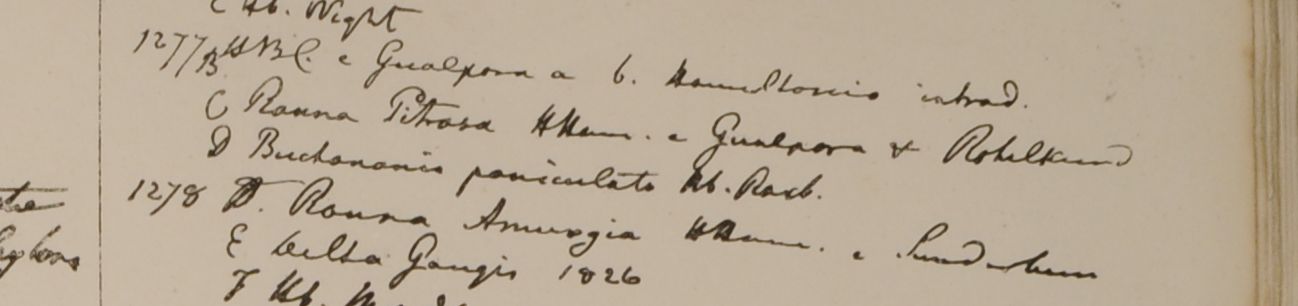 C Hb. Wight
1277 B HBC. e Gualpara a b. Hamiltonio introd.
C Rouna Pitrasa HHam. e Gualpara & Rohilkund
D Buchanania paniculata Hb. Roxb.
1278 D. Rouna Amuxgia HHam. e Sunderbun
E Delta Gangis 1826
F Hb.